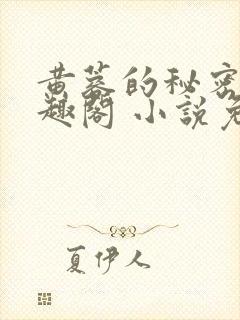 黄蓉的秘密
趣阁 小说免
夏伊人